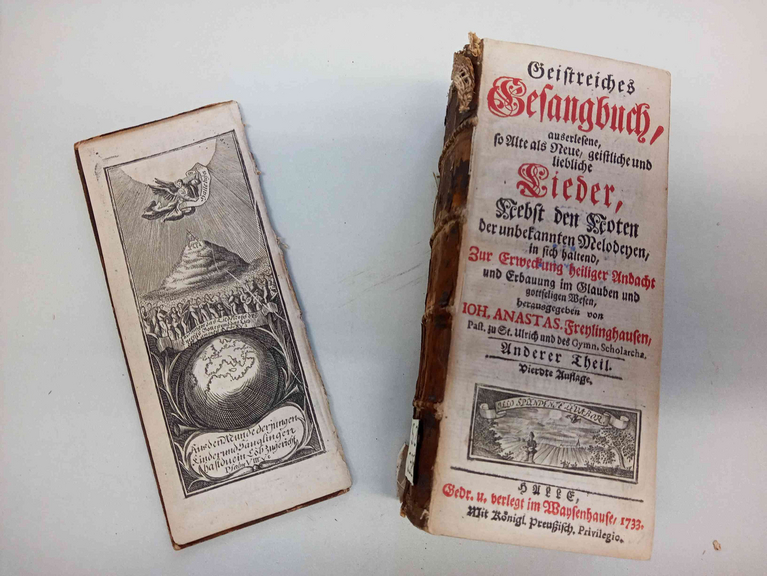 Halleluja
Aus den Munde der jungen
Kinder und Säuglingen
hastdu ein Lob zugericht
Psalm VIII. V.
Geistreiches
Gesangbuch,
auserlesene,
so Alte als Neue, geistliche und
liebliche
Lieder,
Nebst den Noten
der unbekannten Melodeyen,
in sich haltend,
Zur Erweckung heiliger Andacht
und Erbauung im Glauben und
gottseligen Wesen,
herausgegeben von
IOH. ANASTAS. Freylinghausen,
Past. zu St. Ulrich und des Gymn. Scholarcha.
Anderer Theil.
Vierdte Auflage,
ILLO SPLENDENTE LEVABOR
HALLE,
Gedr. u. verlegt im Waysenhause, 1733.
Mit Königl. Preußisch. Privilegio.